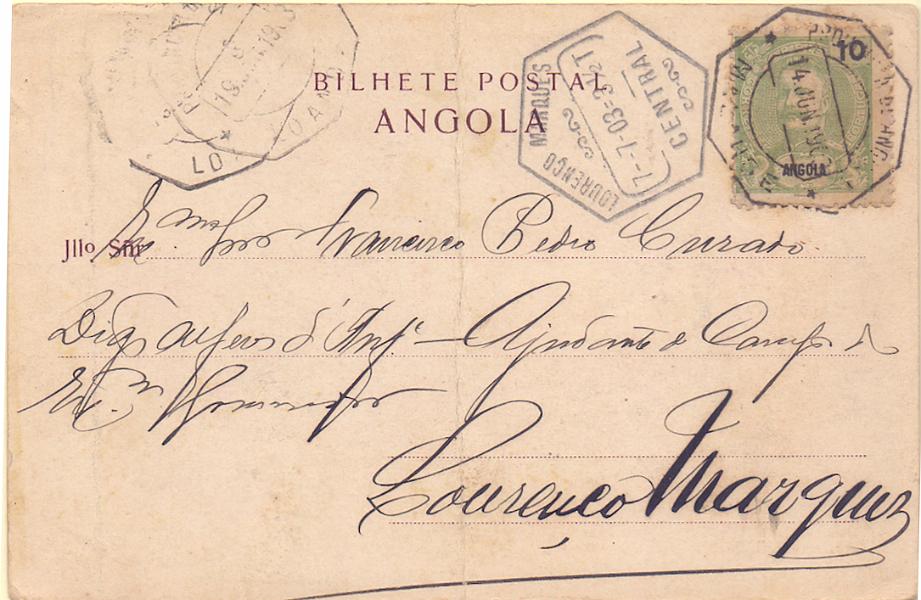 BILHETE POSTAL
ANGOLA
LOURENÇO MARQUES
7-7-03=3/2T
CENTRAL
10
ANGOLA
14 JUN
LOANDA
Illo Snr
Francisco Pedro Curado
Digº alferes d'Infª — Ajudante de Campo de
Exmº Governador
Lourenço Marques